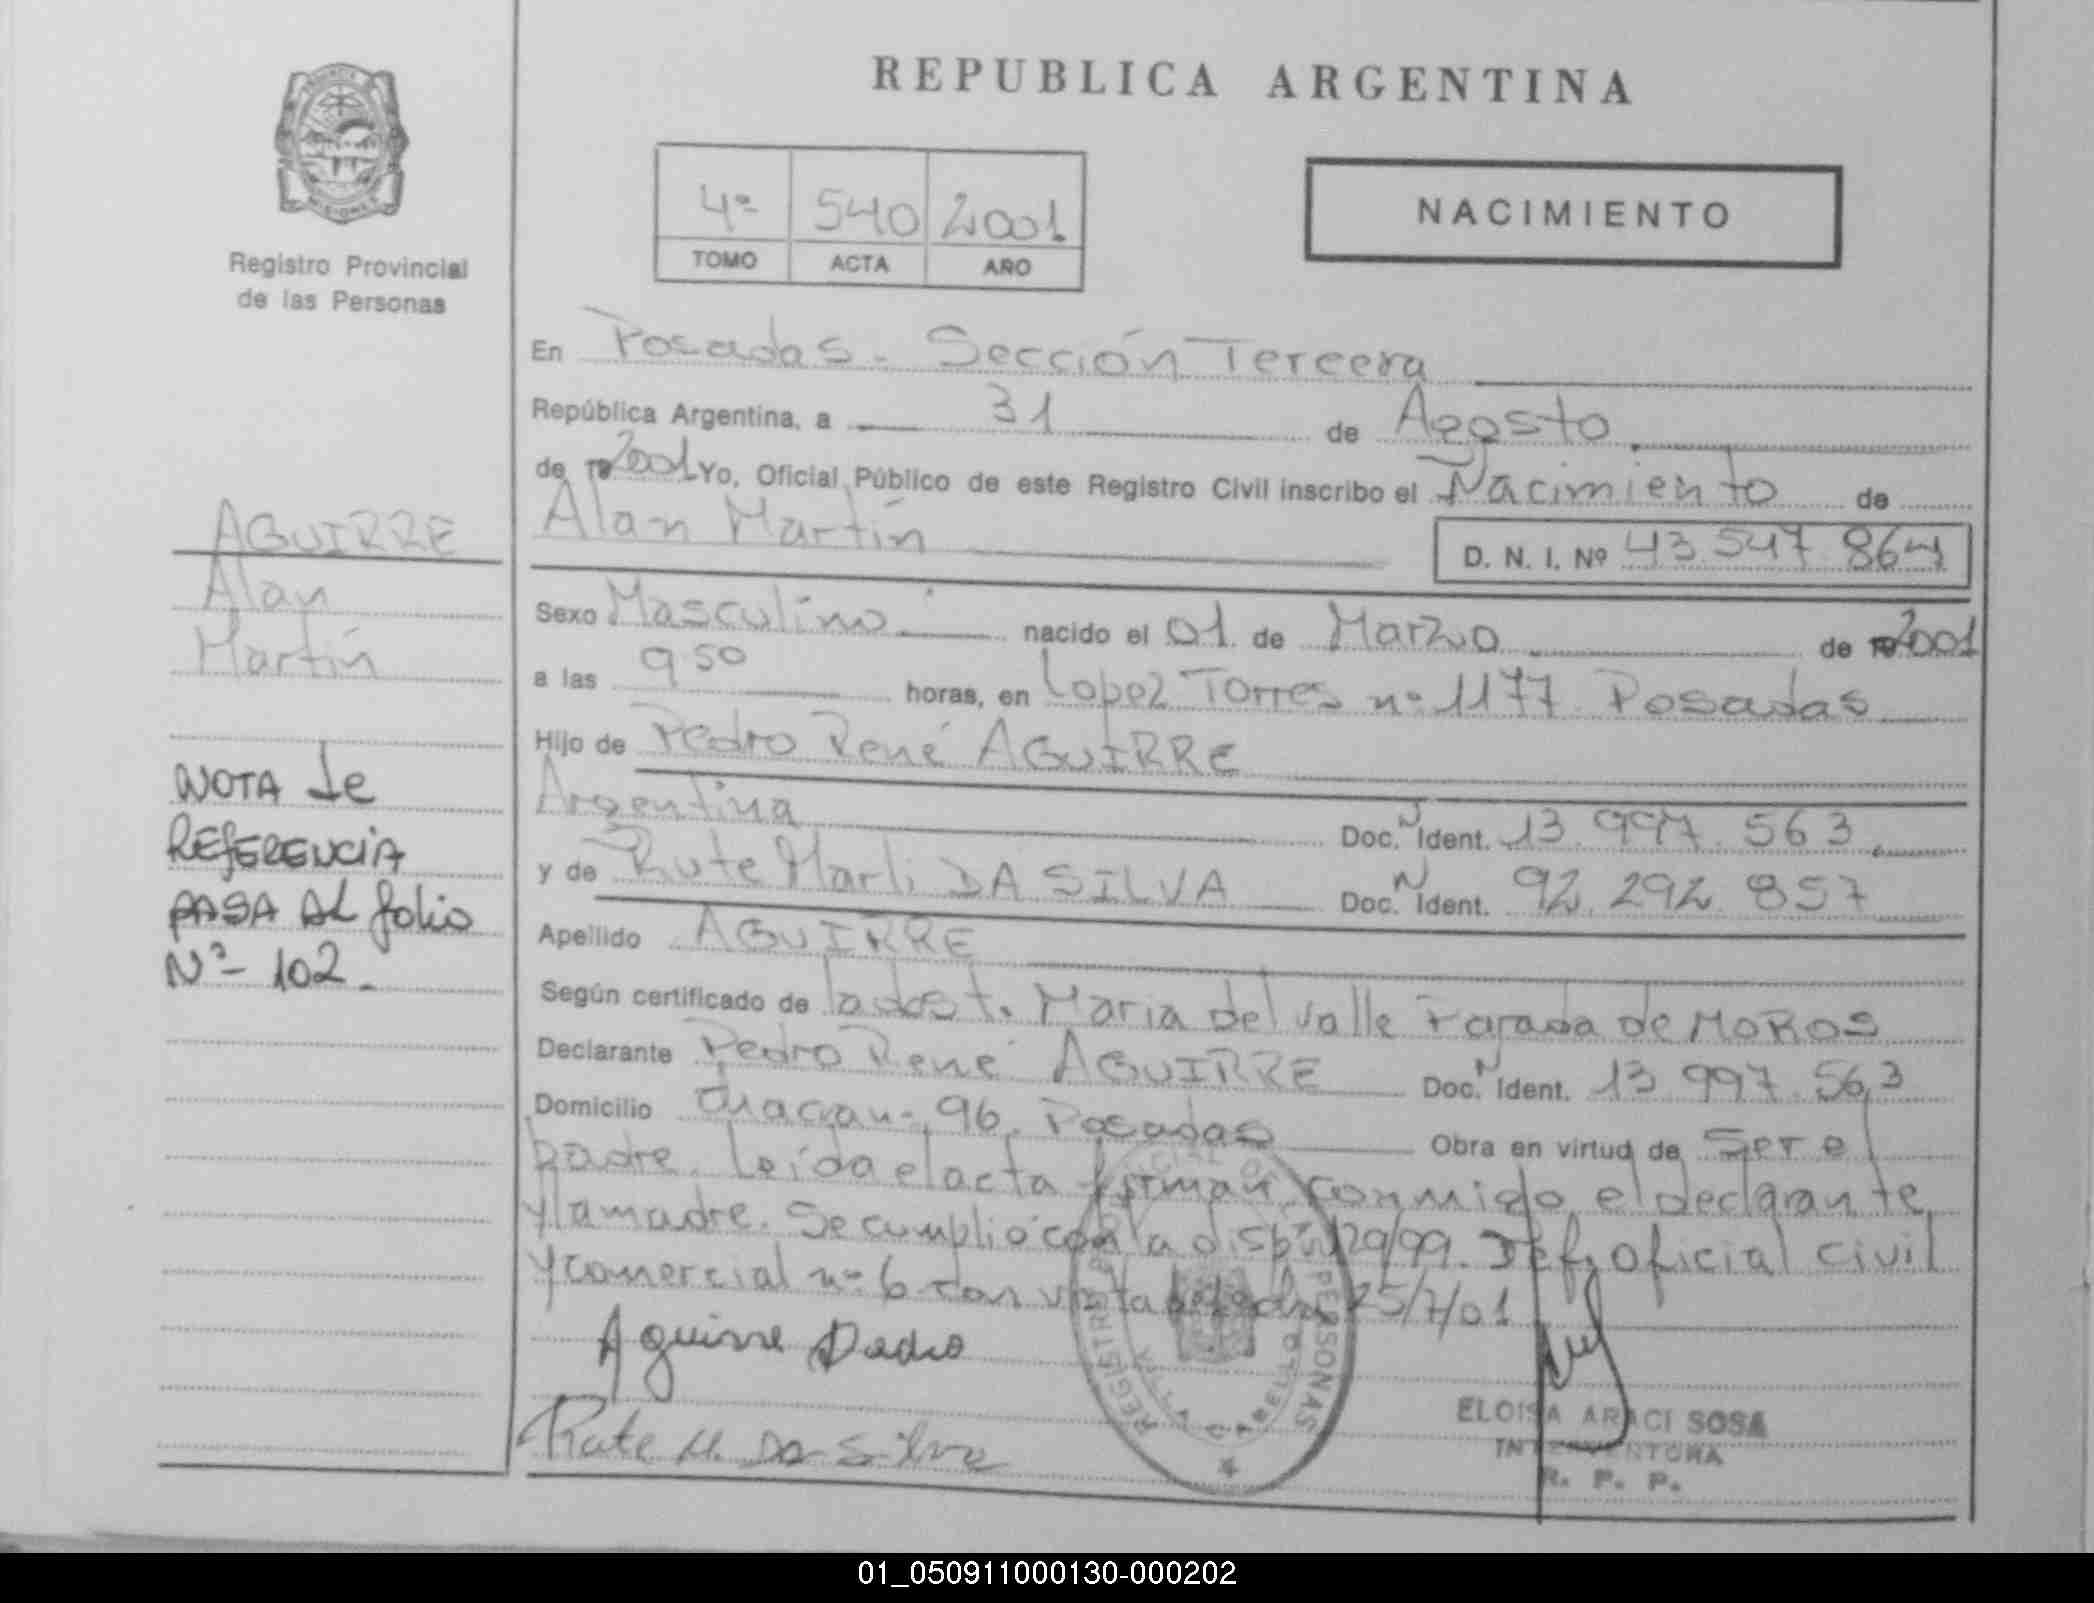 REPUBLICA ARGENTINA
PROVINCIA
MISIONES
Registro Provincial
de las Personas
4ª 540 2001
TOMO ACTA AÑO
NACIMIENTO
En Posadas - Sección Tercera
República Argentina, a 31 de Agosto
de 19 2001 Yo, Oficial Público de este Registro Civil inscribo el Nacimiento de
Alan Martín
D. N. I. Nº 43.547.864
Sexo Masculino nacido el 01 de Marzo de 19 2001
a las 9 50 horas, en Lopez Torres nº 1177 Posadas
Hijo de Pedro René AGUIRRE
Argentina Doc. N Ident. 13.997.563
y de Rute Marli DA SILVA Doc. N Ident. 92.292.857
Apellido AGUIRRE
Según certificado de la obst. Maria del Valle Parada de MOROS
Declarante Pedro René AGUIRRE Doc. N Ident. 13.997.563
Domicilio Chacra nº 96. Posadas Obra en virtud de Ser el
padre. Leída el acta firman conmigo el declarante
y la madre. Se cumplió con la disp. nº 129/99. Def. oficial civil
y comercial nº 6 con vista de fecha 25/7/01
Aguirre Pedro
Rute M. Da Silva
REGISTRO PROVINCIAL DE LAS PERSONAS
VILLA CABELLO
ELOISA ARACI SOSA
INTERVENTORA
R. P. P.
AGUIRRE
Alan
Martín
NOTA de
REFERENCIA
PASA AL folio
Nº - 102.
01_050911000130-000202